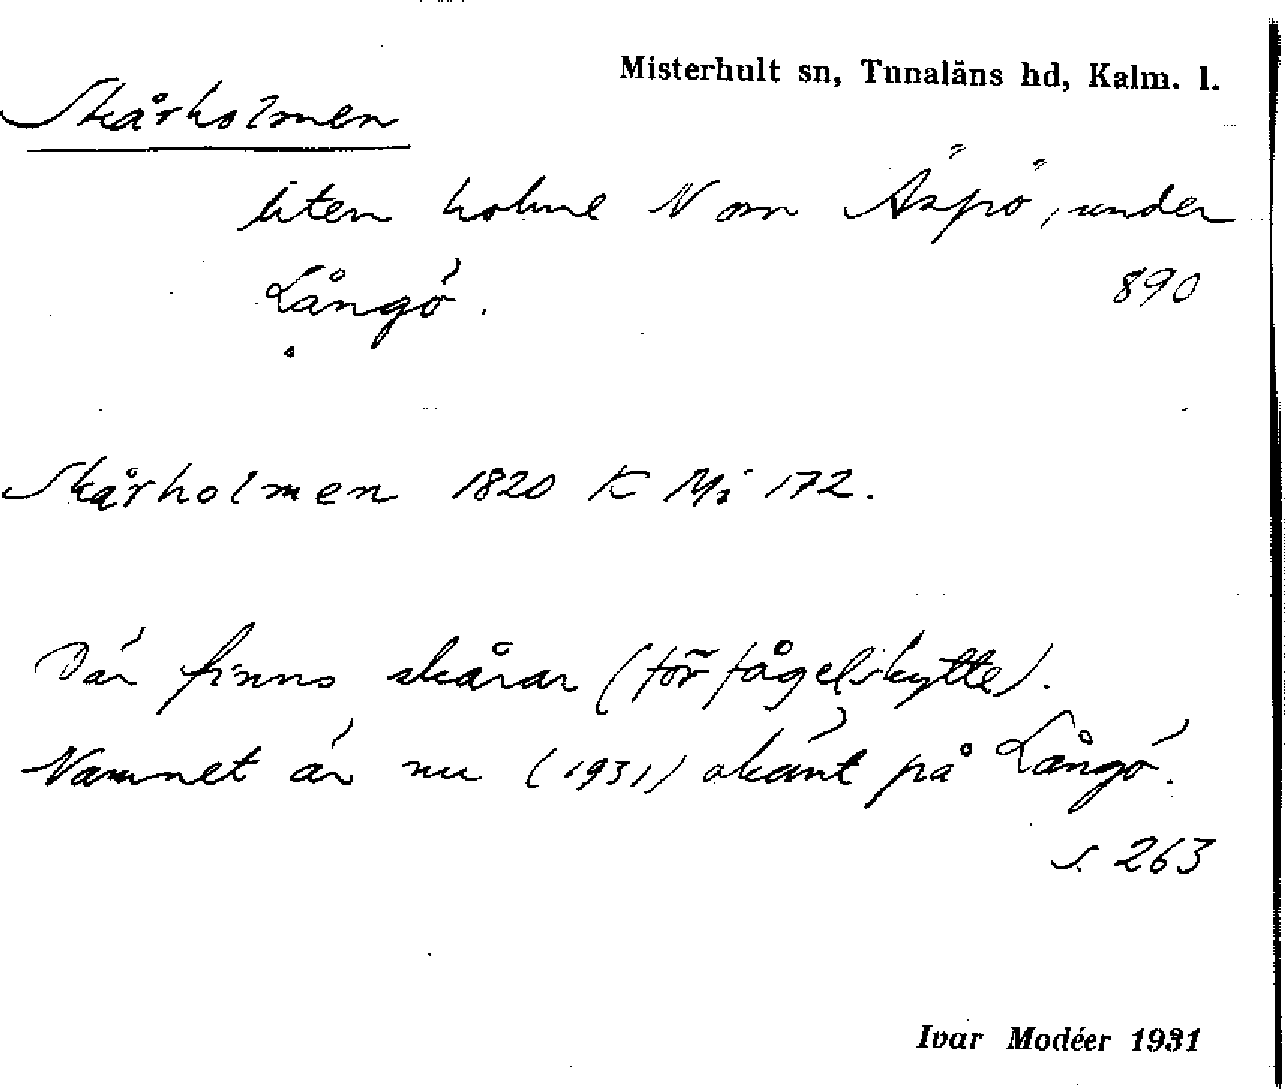 Misterhult sn, Tunaläns hd, Kalm. l.
Skårholmen
liten holme N om Äspö, under
Långö. 890
Skårholmen 1820 K Mi 172.
Där finns skårar (för fågelskytte).
Namnet är nu (1931) okänt på Långö.
s. 263
Ivar Modéer 1931